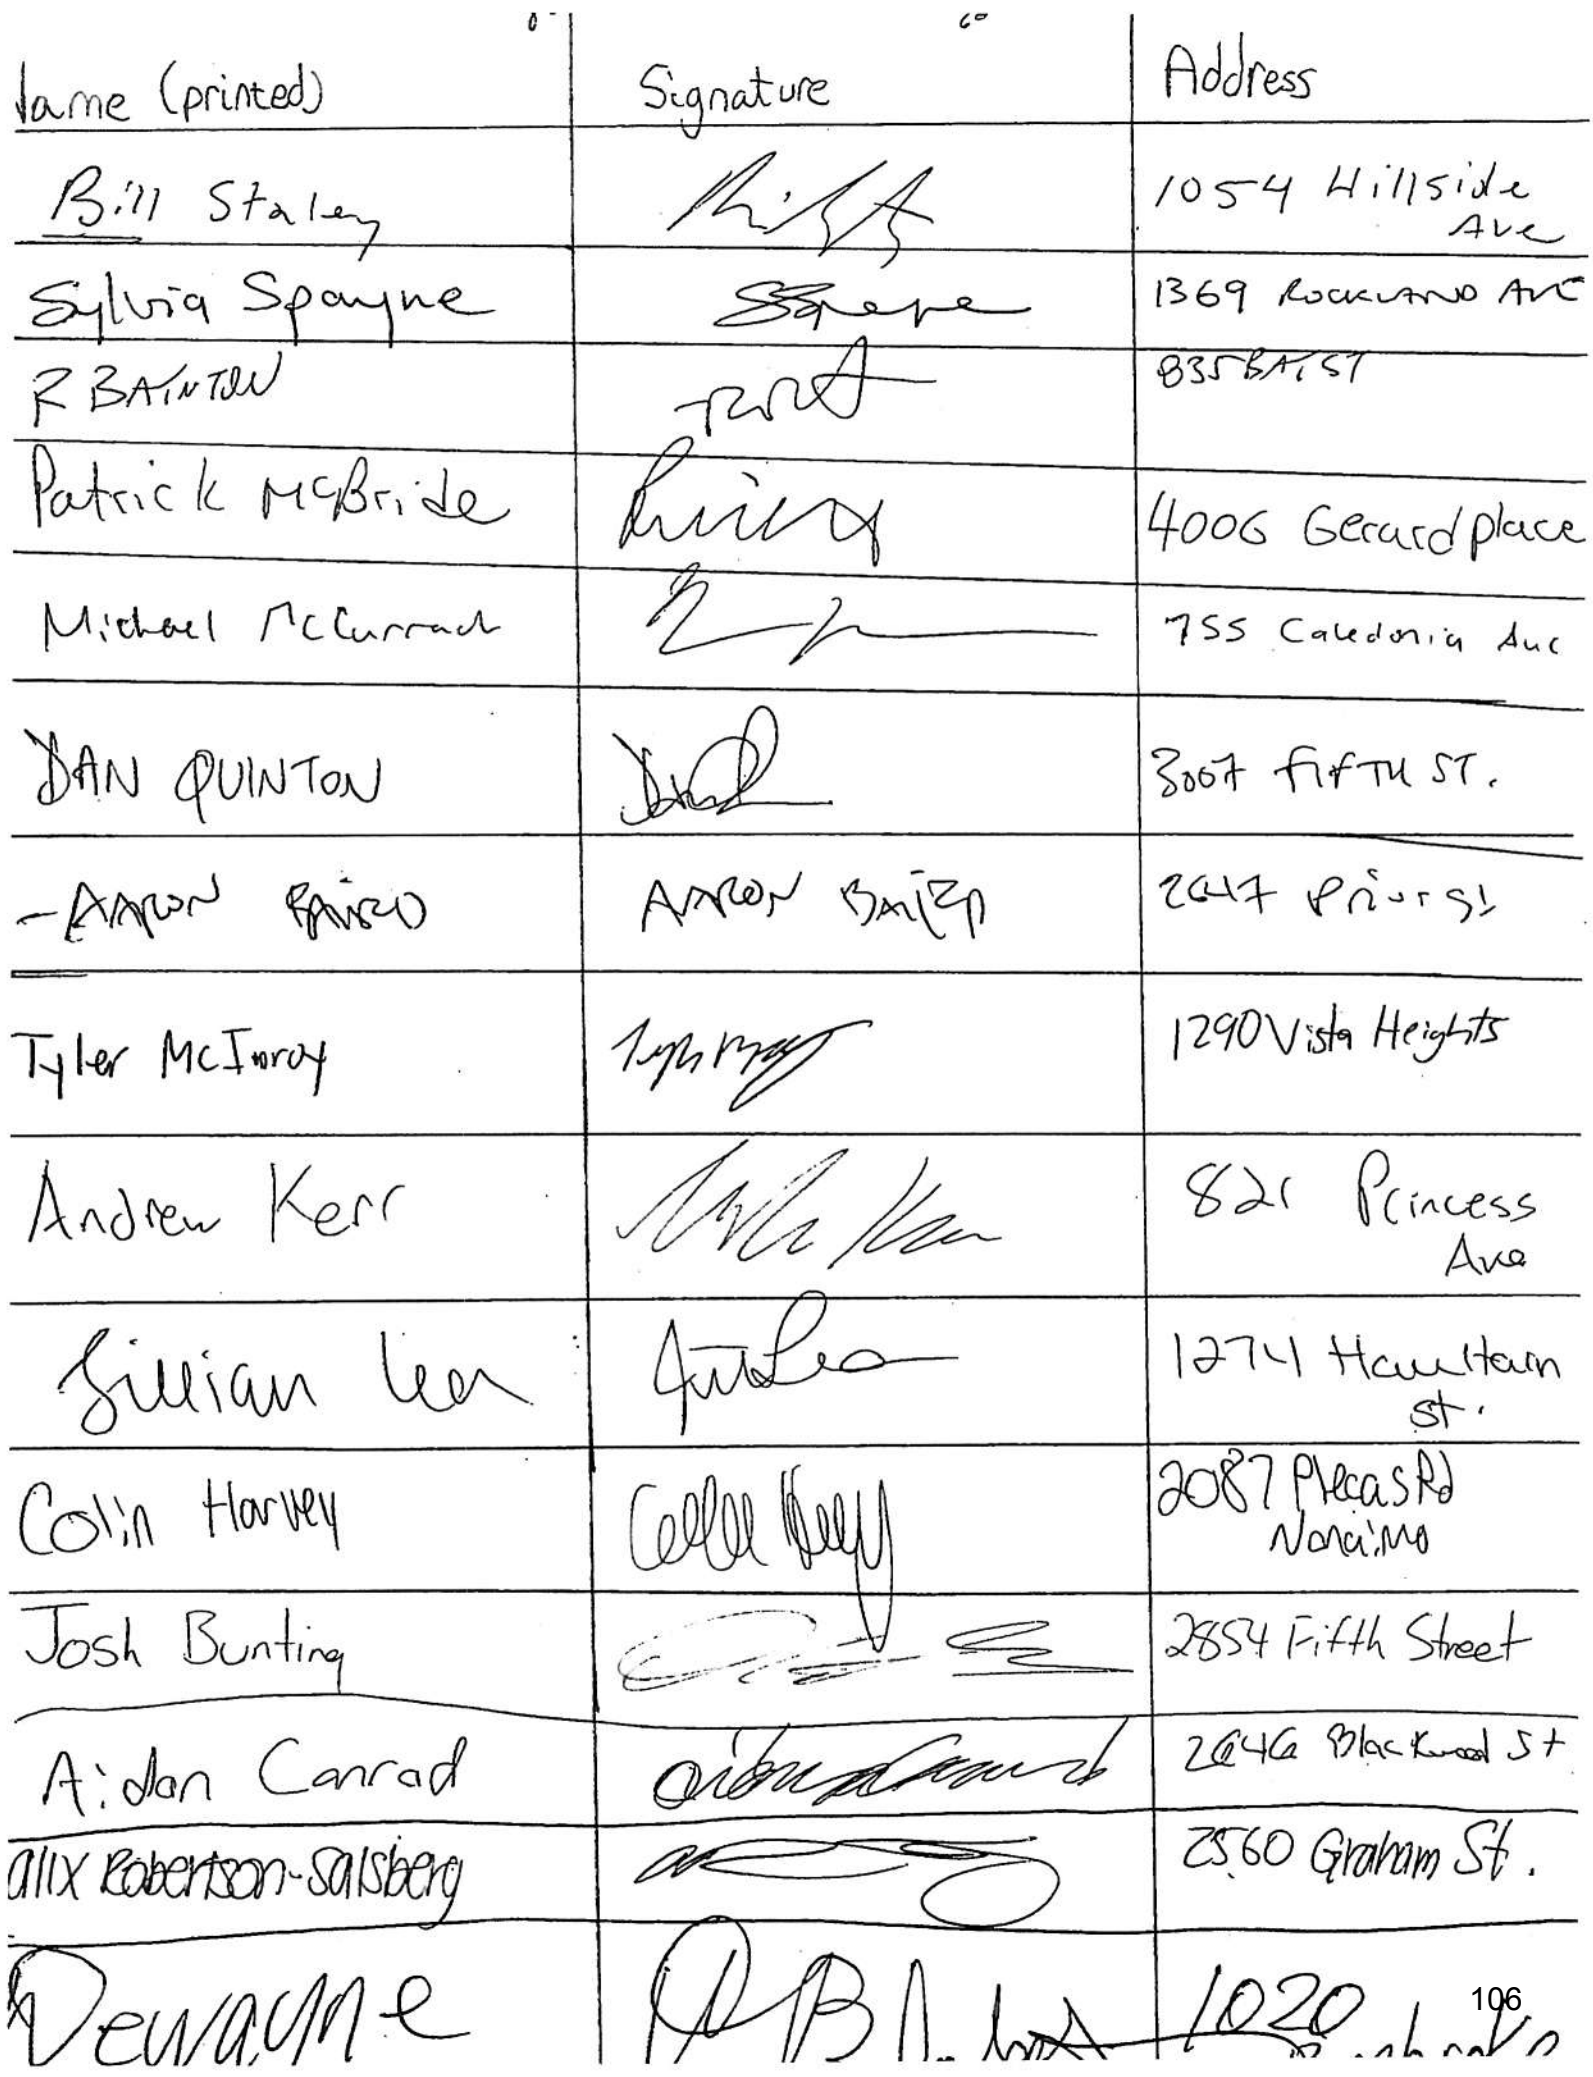 Name (printed) Signature Address
Bill Staley 1054 Hillside
Ave
Sylvia Spayne 1369 ROCKLAND AVE
R BAINTON 835 BAY ST
Patrick McBride 4006 Gerard place
Michael McCurrach 755 Caledonia Ave
DAN QUINTON 3007 FIFTH ST.
AARON BAIRD AARON BAIRD 2647 Prior St
Tyler McInroy 1290 Vista Heights
Andrew Kerr 821 Princess
Ave
Jillian Lea 1274 Haultain
St.
Colin Harvey 2087 Plecas Rd
Nanaimo
Josh Bunting 2854 Fifth Street
Aidan Conrad 2646 Blackwood St
alix Robertson-Salsberg 2560 Graham St.
Dewayne 1020
106